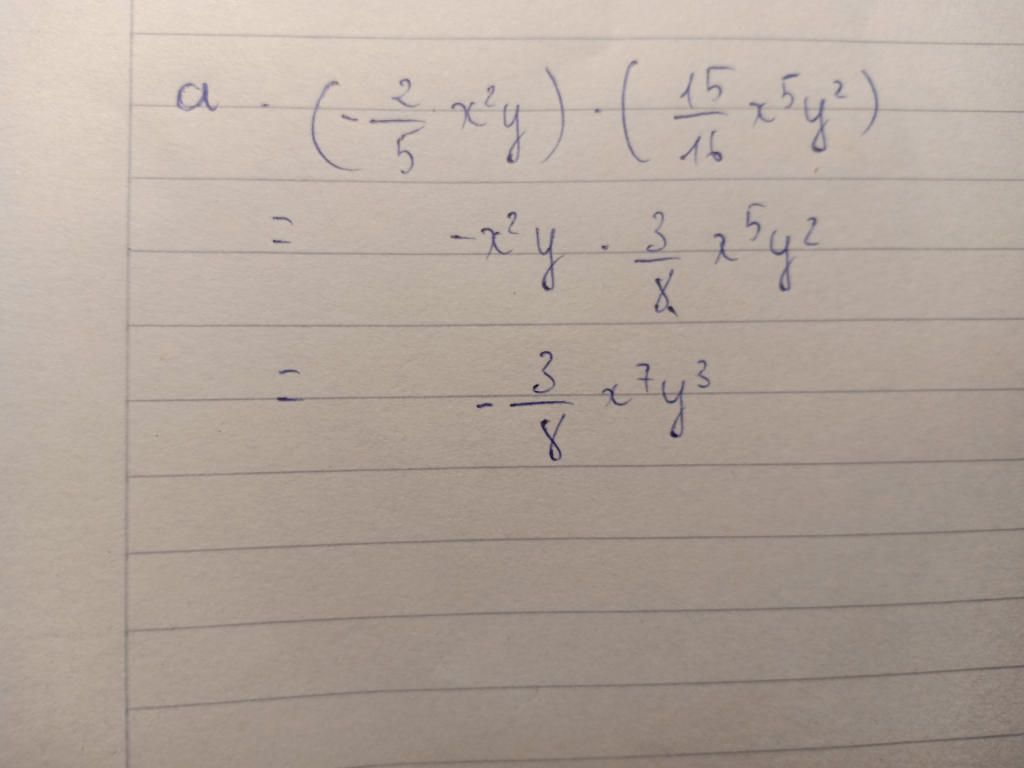 a . (-2/5 x²y) · (15/16 x⁵y²)
= -x²y · 3/8 x⁵y²
= -3/8 x⁷y³